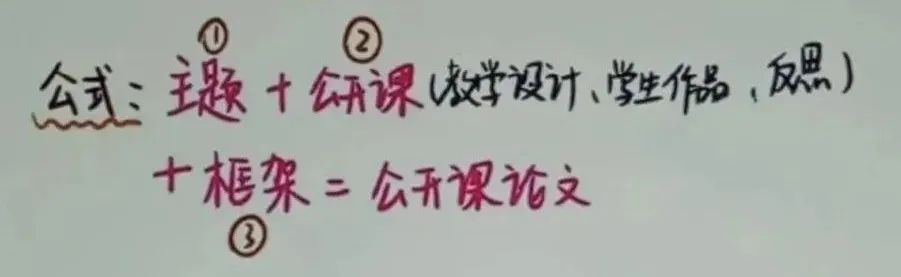 ① ②
公式：主题+公开课(教学设计、学生作品、反思)
+框架=公开课论文
③